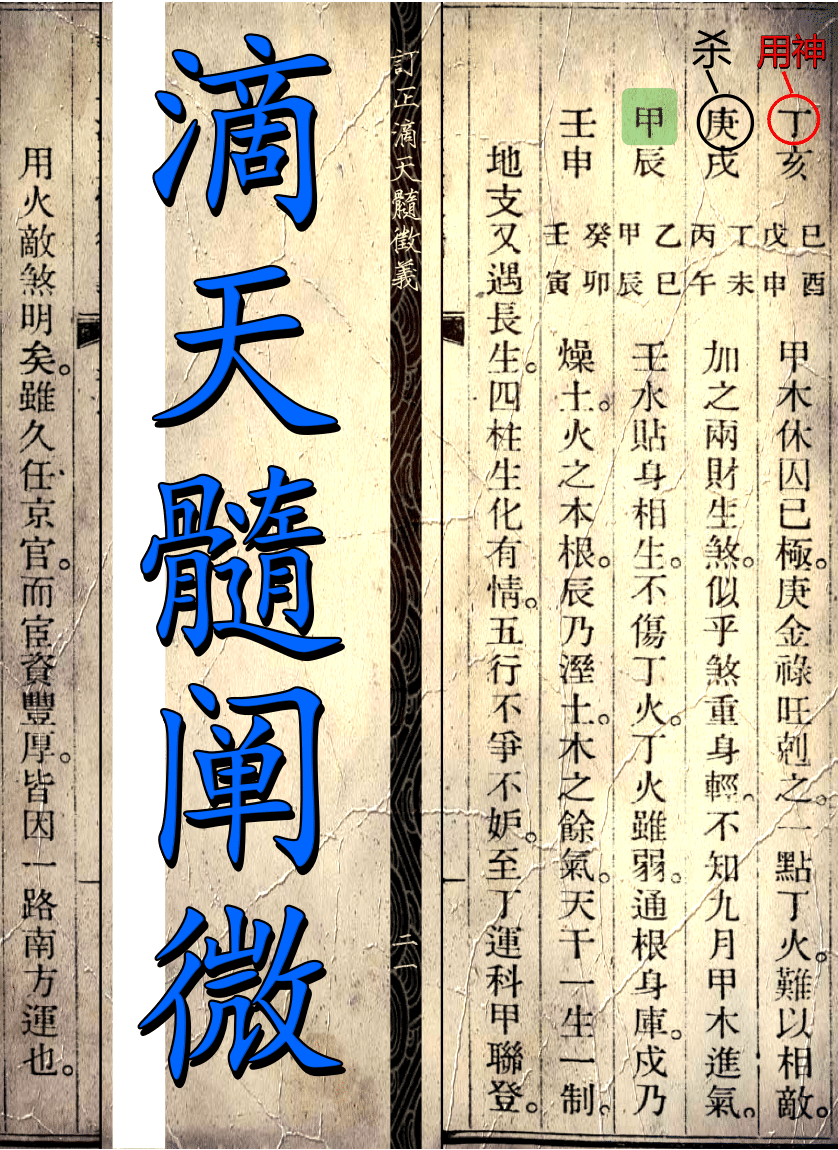 用神
杀
丁亥
庚戌
甲辰
壬申
己酉
戊申
丁未
丙午
乙巳
甲辰
癸卯
壬寅
甲木休囚已極。庚金祿旺剋之。一點丁火。難以相敵。
加之兩財生煞。似乎煞重身輕。不知九月甲木進氣。
壬水貼身相生。不傷丁火。丁火雖弱。通根身庫。戌乃
燥土。火之本根。辰乃溼土。木之餘氣。天干一生一制。
地支又遇長生。四柱生化有情。五行不爭不妒。至丁運科甲聯登。
訂正滴天髓徵義
二一
滴天髓阐微
用火敵煞明矣。雖久任京官。而宦資豐厚。皆因一路南方運也。